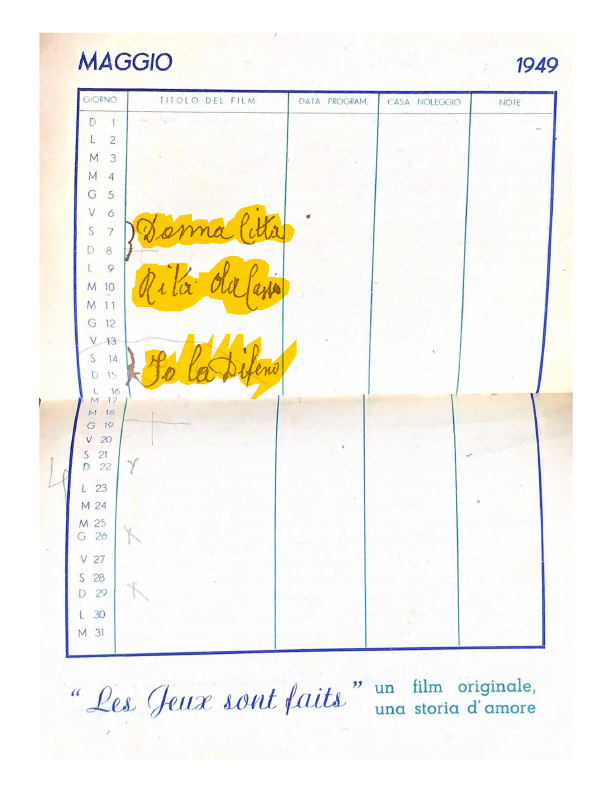 MAGGIO 1949
GIORNO TITOLO DEL FILM DATA PROGRAM. CASA NOLEGGIO NOTE
D 1
L 2
M 3
M 4
G 5
V 6
S 7 Donna Città
D 8
L 9
M 10 Rita da Cassia
M 11
G 12
V 13
S 14
D 15 Io la Difeno
L 16
M 17
M 18
G 19
V 20
S 21
D 22
L 23
M 24
M 25
G 26
V 27
S 28
D 29
L 30
M 31
“ Les Jeux sont faits ” un film originale,
una storia d'amore